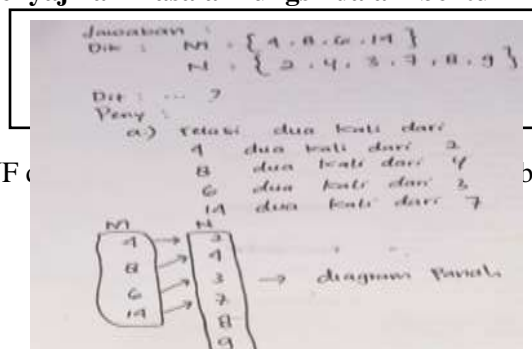 Jawaban :
Dik : M = { 4, 8, 6, 14 }
N = { 2, 4, 3, 7, 8, 9 }
Dit : ... ?
Peny :
a.) relasi dua kali dari
4 dua kali dari 2
8 dua kali dari 4
6 dua kali dari 3
14 dua kali dari 7
M N
4 → 2
8 → 4
6 → 3 → diagram Panah
14 → 7
8
9